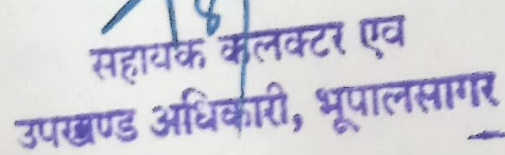 सहायक कलक्टर एव
उपखण्ड अधिकारी, भूपालसागर